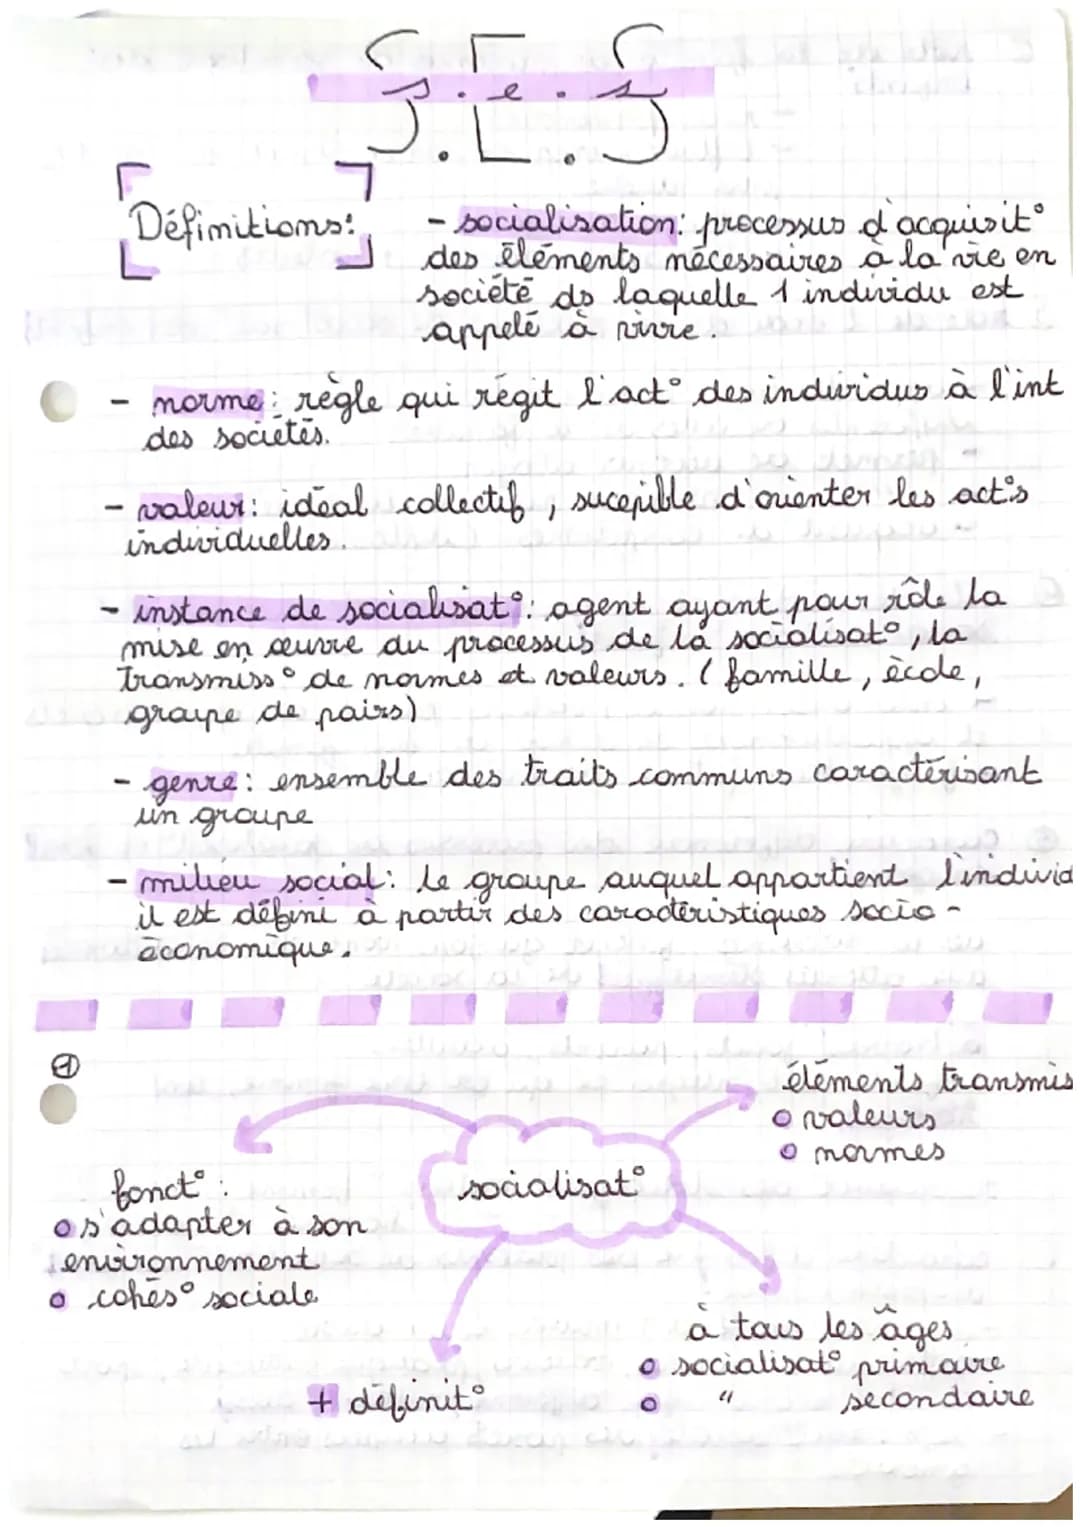 S.E.S
s.e.s
Définitions:
- socialisation: processus d'acquisit°
des éléments nécessaires à la vie en
société ds laquelle 1 individu est
appelé à vivre.
- norme: règle qui régit l'act° des individus à l'int
des sociétés.
- valeur: idéal collectif, suceptible d'orienter les act°s
individuelles.
- instance de socialisat°: agent ayant pour rôle la
mise en œuvre du processus de la socialisat°, la
transmiss° de normes et valeurs. (famille, école,
groupe de pairs)
- genre: ensemble des traits communs caractérisant
un groupe
- milieu social: le groupe auquel appartient l'individ
il est défini à partir des caractéristiques socio-
économique.
①
éléments transmis
o valeurs
o normes
socialisat°
fonct° :
o s'adapter à son
environnement
o cohés° sociale
+ définit°
à tous les âges
o socialisat° primaire
o " secondaire